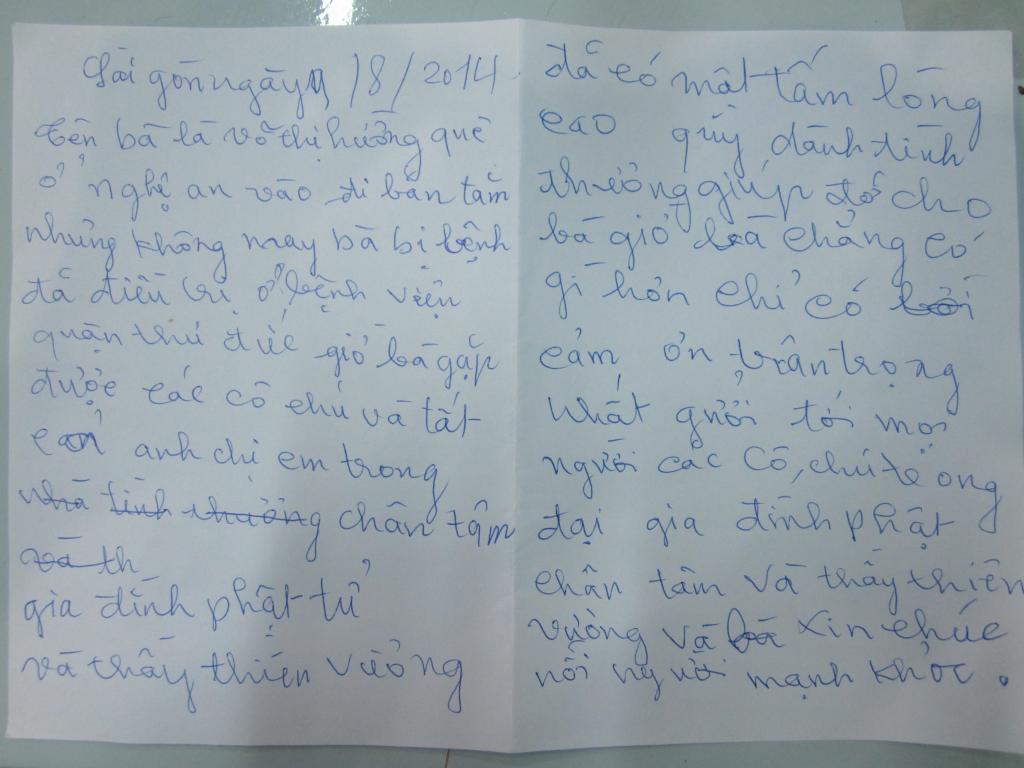 Sài gòn ngày 11/8/2014.
Tên bà là võ thị hường quê
ở nghệ an vào đi bán tăm
nhưng không may bà bị bệnh
đã điều trị ở bệnh viện
quận thủ đức giờ bà gặp
được các cô chú và tất
cả anh chị em trong
nhà tình thương chân tâm
và th
gia đình phật tử
và thầy thiện vương
đã có một tấm lòng
cao qúy dành tình
thương giúp đỡ cho
bà giờ bà chẳng có
gì hơn chỉ có lời
cảm ơn trân trọng
nhất gửi tới mọi
người các cô, chú
đại gia đình phật
chân tâm và thầy thiên
vương và bà xin chúc
mỗi người mạnh khỏe.